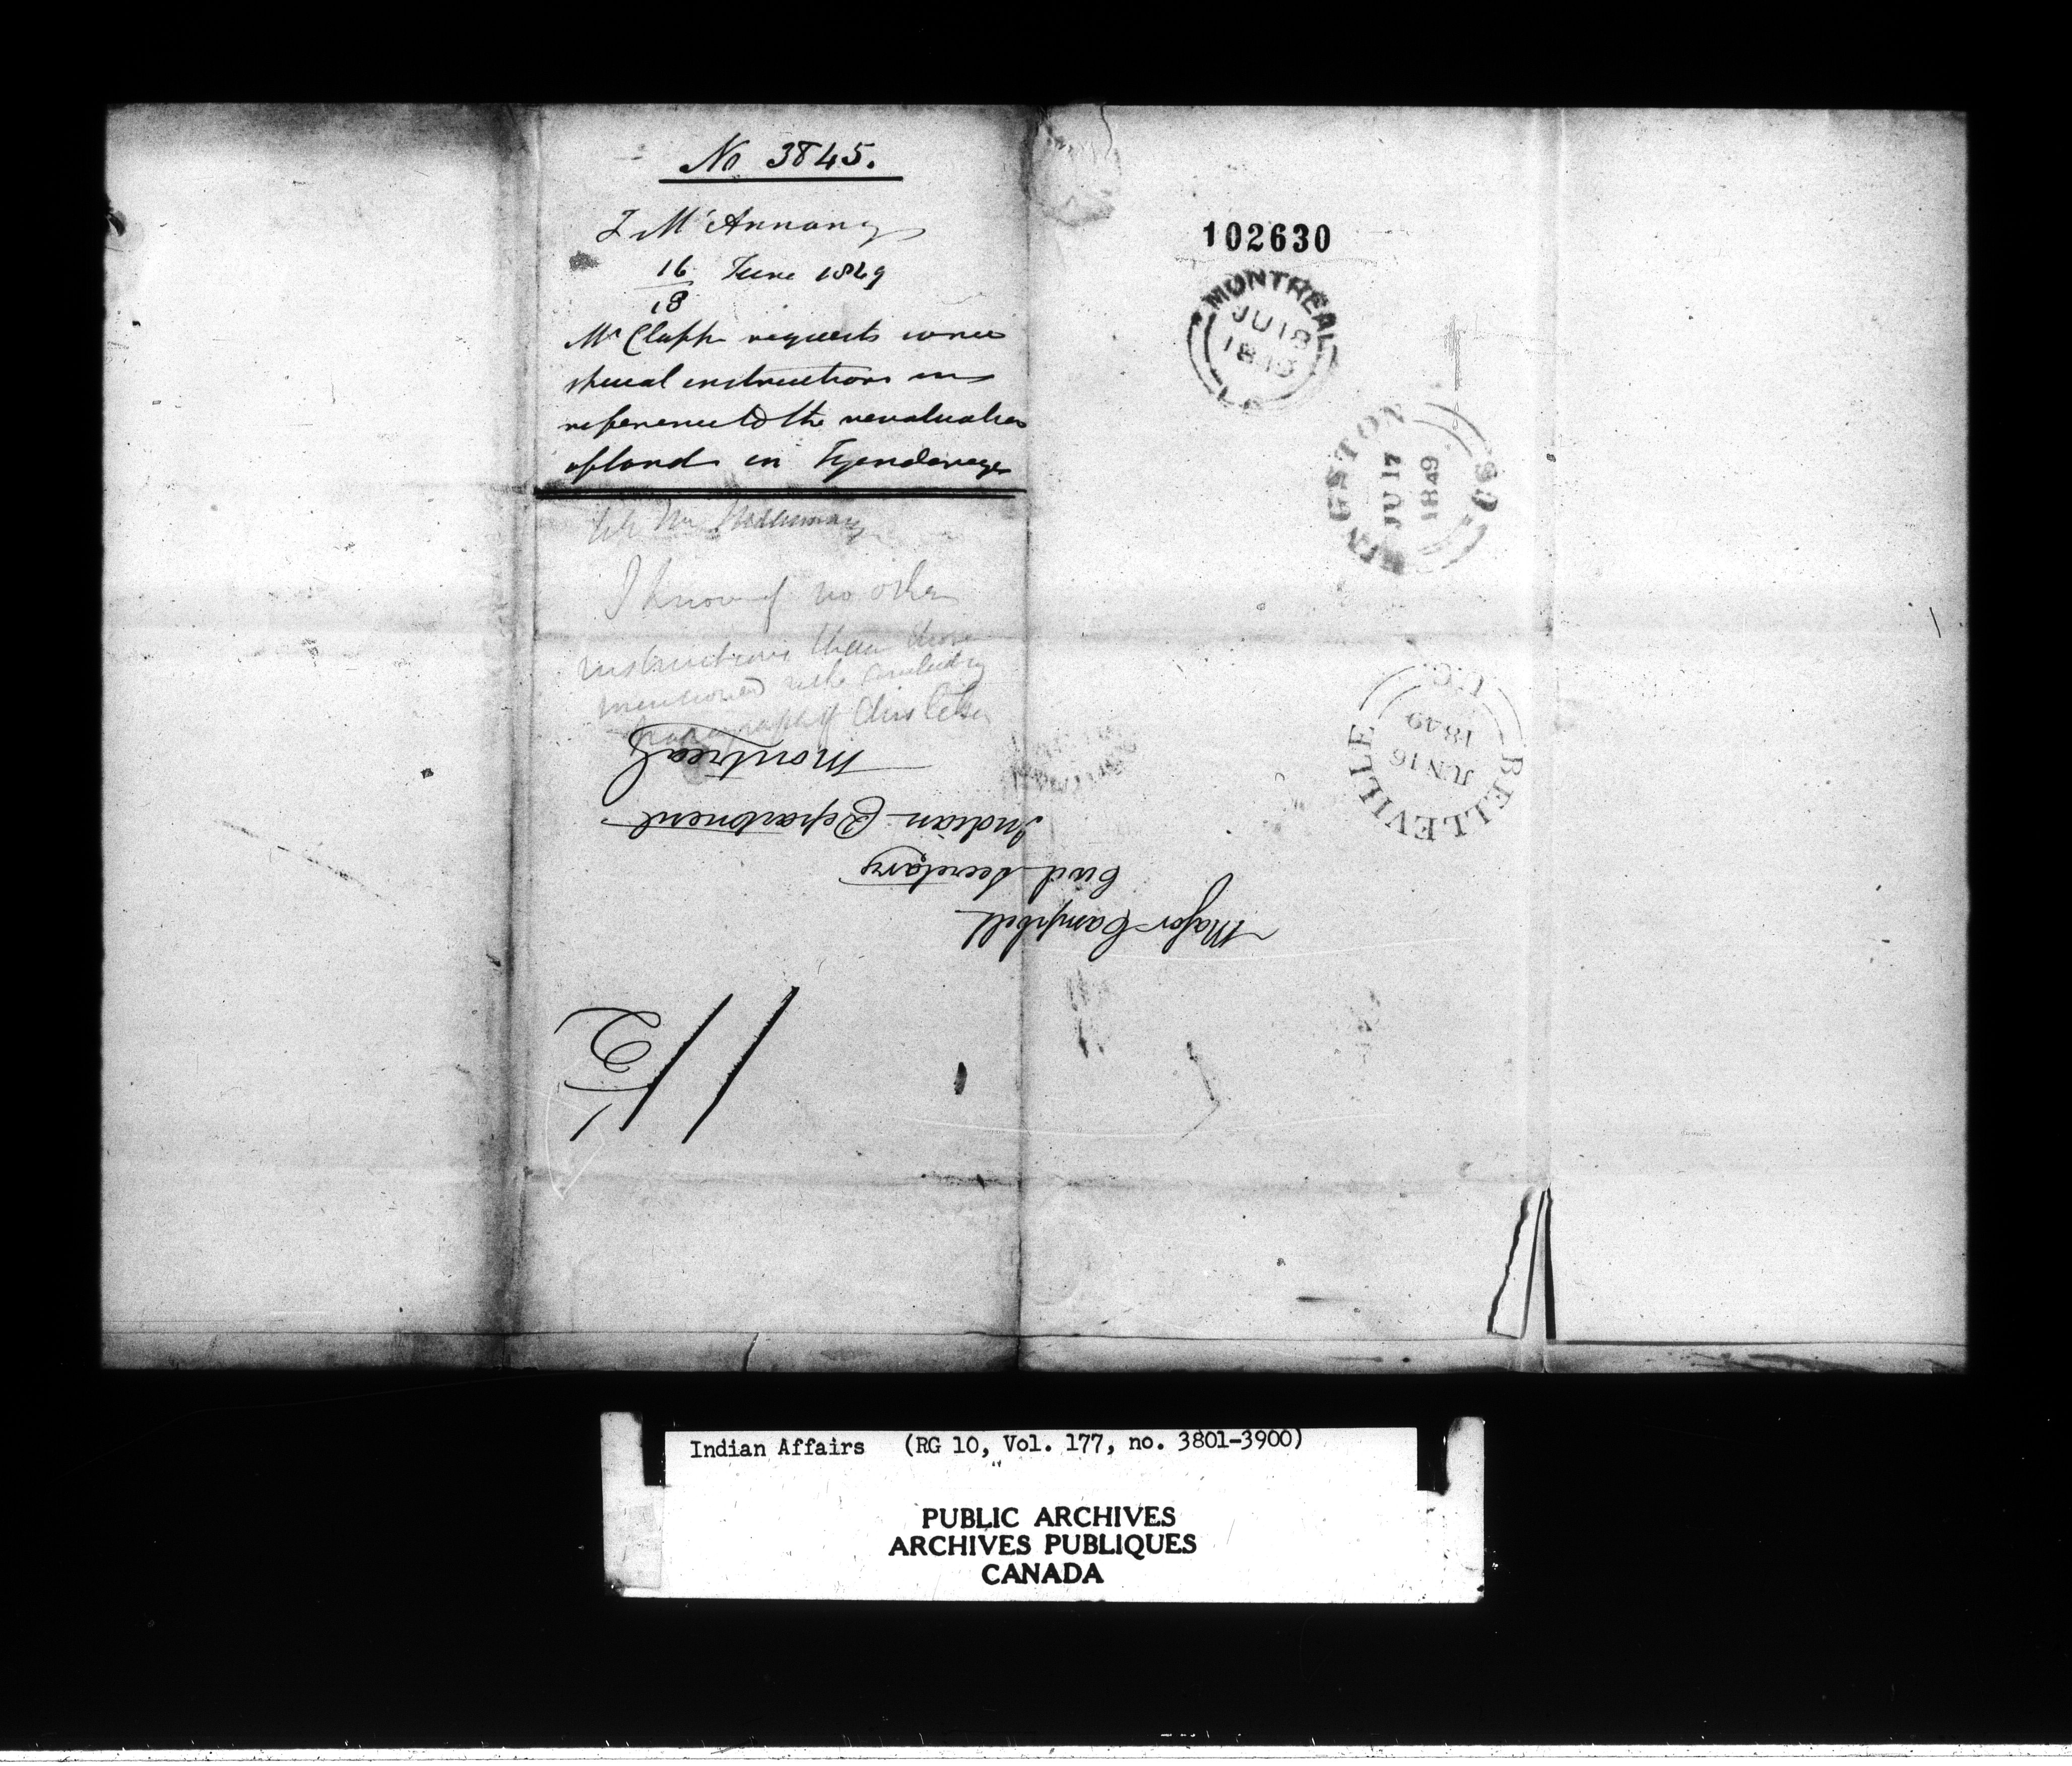 No 3845.
T McAnnany
16 June 1849
18
Mr Clapp requests some
special instructions in
reference to the revaluation
of lands in Tyendenaga
I know of no other
instructions than those
mentioned in the concluding
paragraph of this letter
102630
MONTREAL
JU 18
1849
L.C
KINGSTON
JU 17
1849
U.C.
BELLEVILLE
JUN 16
1849
U.C.
Major Campbell
Civil Secretary
Indian Department
Montreal
Indian Affairs (RG 10, Vol. 177, no. 3801-3900)
PUBLIC ARCHIVES
ARCHIVES PUBLIQUES
CANADA